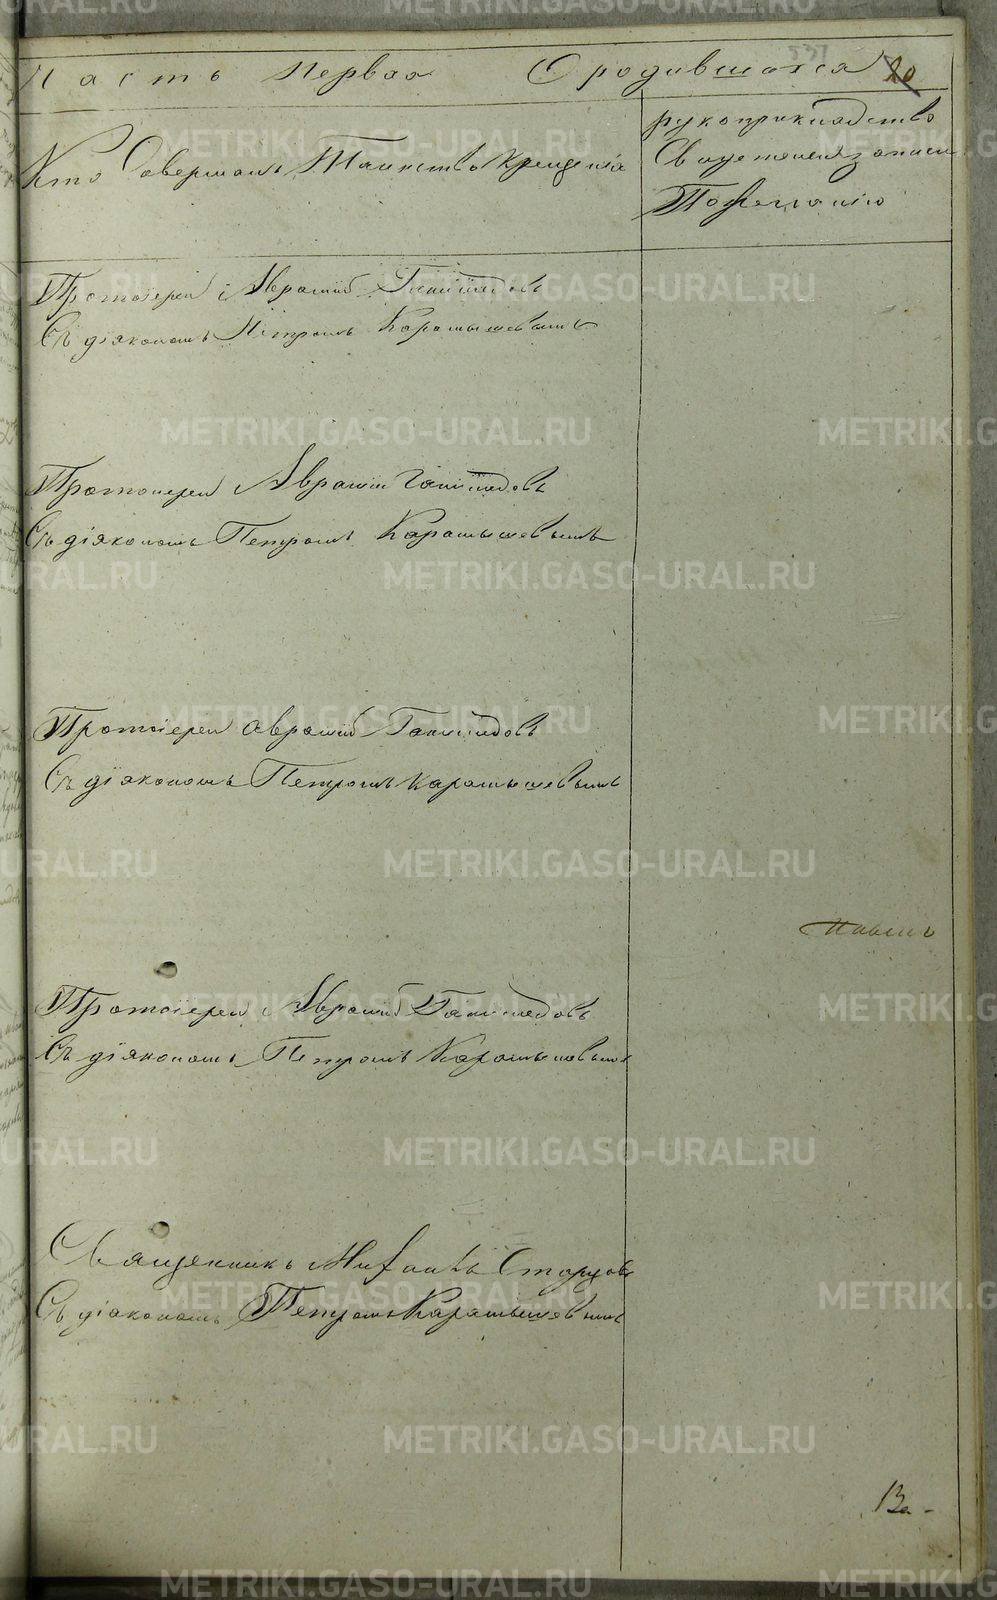 Часть первая О родившихся 20
531
Кто Совершалъ Таинство Крещенія
рукоприкладство
Свидетелей записи
По желанію
Протоіерей Авраамій
Съ діякономъ Петромъ Карамышевымъ
Протоіерей Авраамій
Съ діякономъ Петромъ Карамышевымъ
Протоіерей Авраамій
Съ діякономъ Петромъ Карамышевымъ
Протоіерей Авраамій
Съ діякономъ Петромъ Карамышевымъ
Священникъ Михаилъ Старцовъ
Съ діякономъ Петромъ Карамышевымъ
METRIKI.GASO-URAL.RU